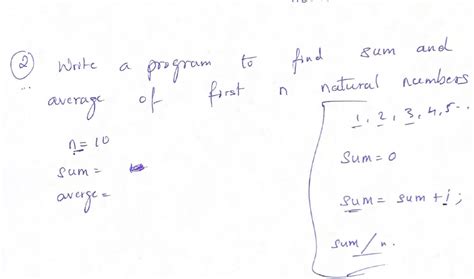 ② Write a program to find sum and
average of first n natural numbers
n = 10
sum =
averge =
1, 2, 3, 4, 5..
Sum = 0
sum = sum + i;
sum / n.